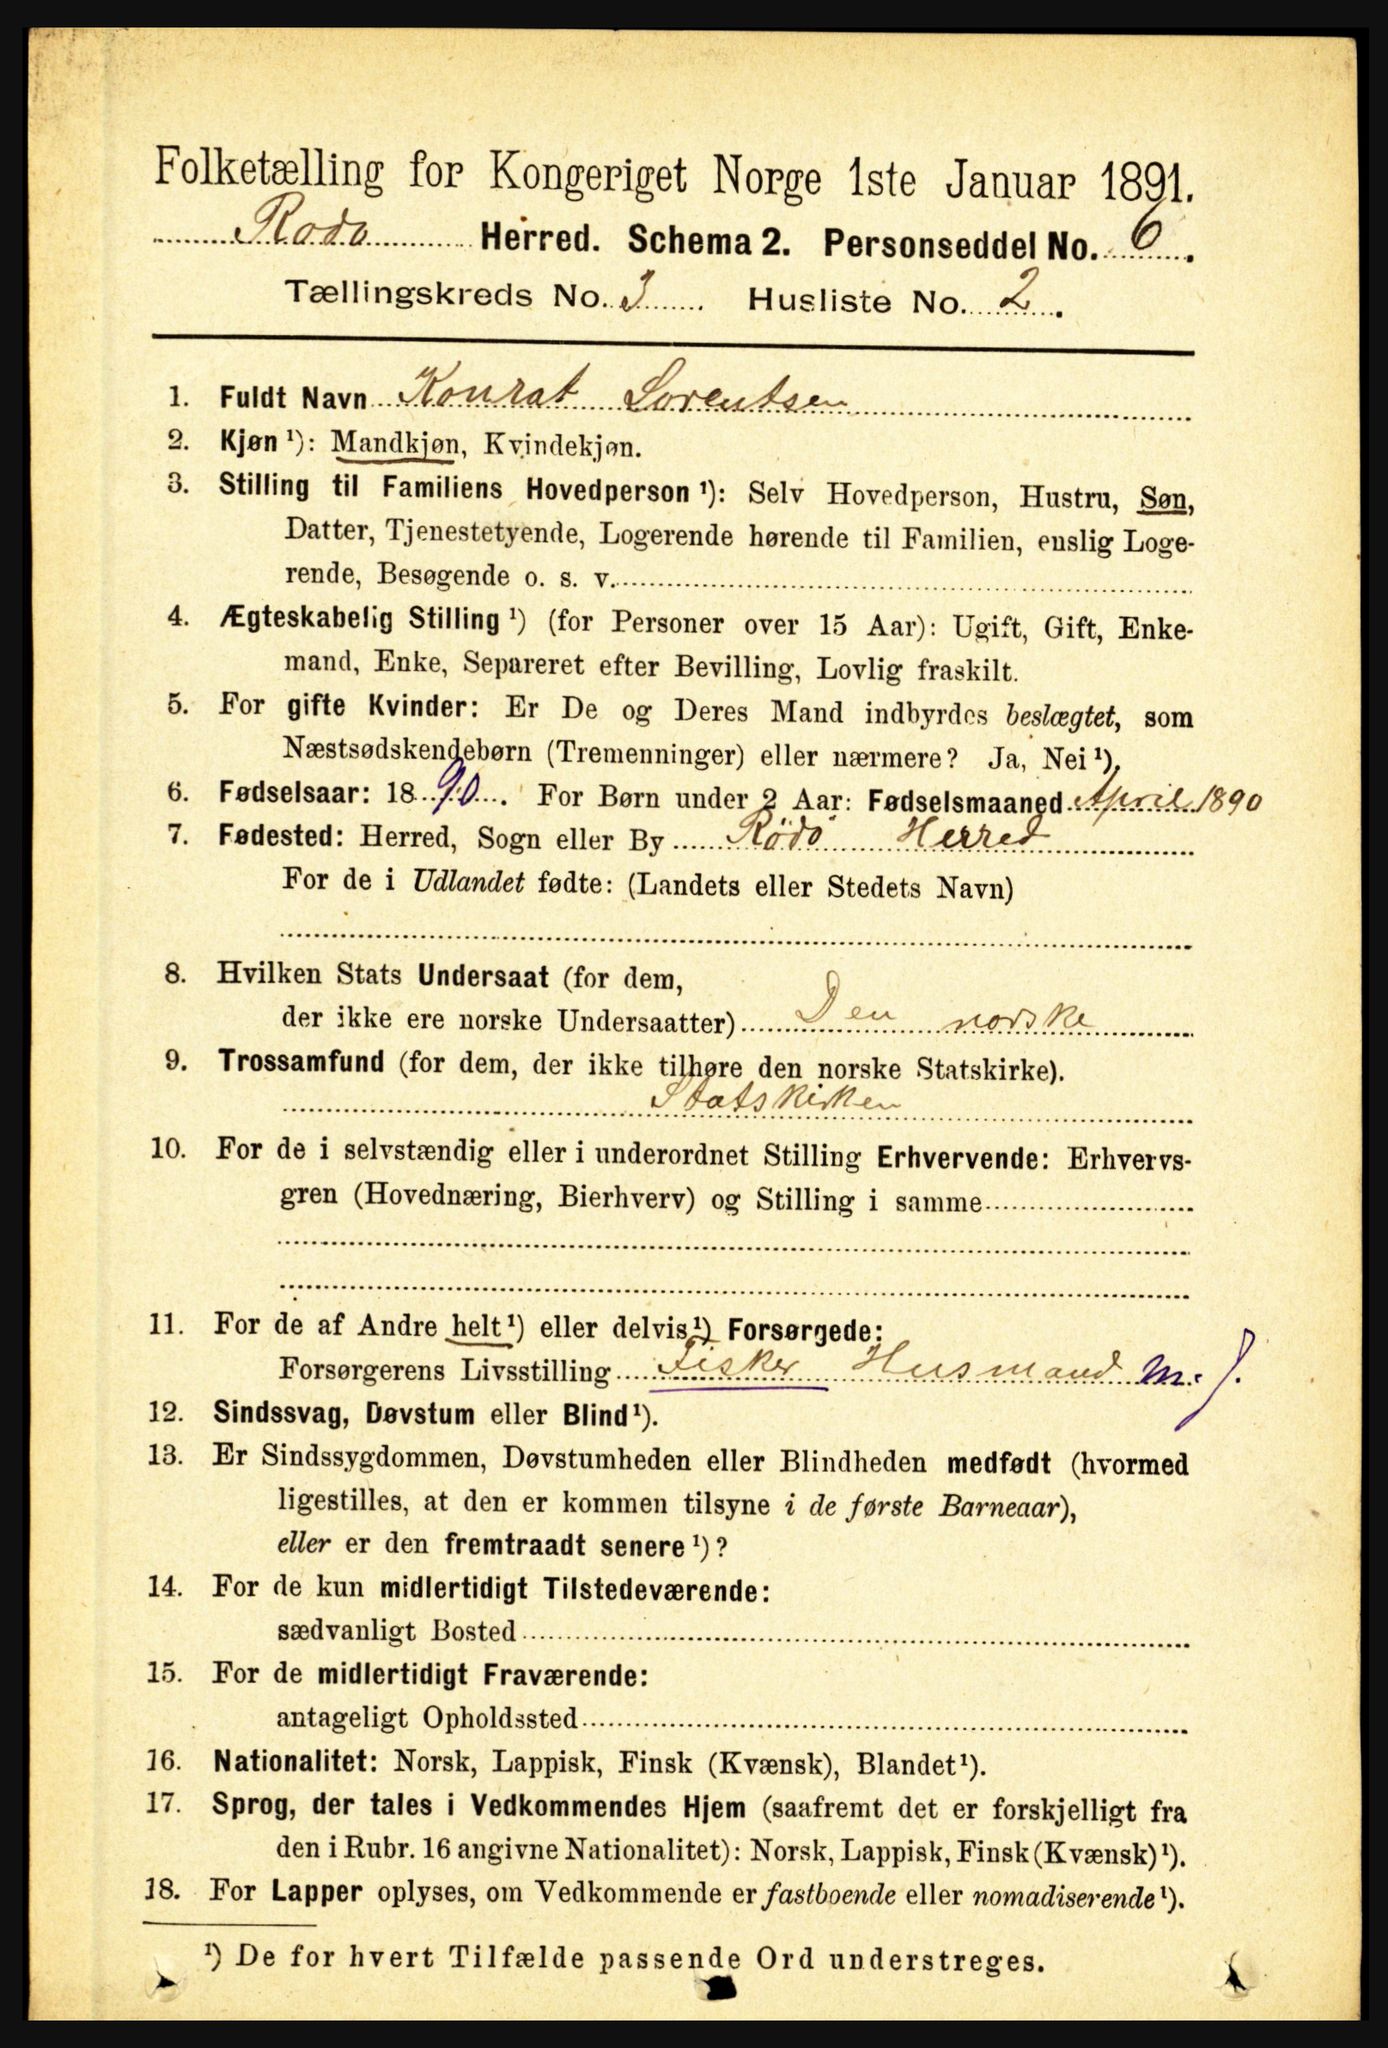 Folketælling for Kongeriget Norge 1ste Januar 1891.
Rodo Herred. Schema 2. Personseddel No. 6.
Tællingskreds No. 3 Husliste No. 2.
1. Fuldt Navn Konrat Lorentsen
2. Kjøn ¹): Mandkjøn, Kvindekjøn.
3. Stilling til Familiens Hovedperson ¹): Selv Hovedperson, Hustru, Søn,
Datter, Tjenestetyende, Logerende hørende til Familien, enslig Loge-
rende, Besøgende o. s. v.
4. Ægteskabelig Stilling ¹) (for Personer over 15 Aar): Ugift, Gift, Enke-
mand, Enke, Separeret efter Bevilling, Lovlig fraskilt.
5. For gifte Kvinder: Er De og Deres Mand indbyrdes beslægtet, som
Næstsødskendebørn (Tremenninger) eller nærmere? Ja, Nei ¹).
6. Fødselsaar: 1890. For Børn under 2 Aar: Fødselsmaaned April 1890
7. Fødested: Herred, Sogn eller By Rödö Herred
For de i Udlandet fødte: (Landets eller Stedets Navn)
8. Hvilken Stats Undersaat (for dem,
der ikke ere norske Undersaatter) Den norske
9. Trossamfund (for dem, der ikke tilhøre den norske Statskirke).
Statskirken
10. For de i selvstændig eller i underordnet Stilling Erhvervende: Erhvervs-
gren (Hovednæring, Bierhverv) og Stilling i samme
11. For de af Andre helt ¹) eller delvis ¹) Forsørgede:
Forsørgerens Livsstilling Fisker Husmand m. J.
12. Sindssvag, Døvstum eller Blind ¹).
13. Er Sindssygdommen, Døvstumheden eller Blindheden medfødt (hvormed
ligestilles, at den er kommen tilsyne i de første Barneaar),
eller er den fremtraadt senere ¹)?
14. For de kun midlertidigt Tilstedeværende:
sædvanligt Bosted
15. For de midlertidigt Fraværende:
antageligt Opholdssted
16. Nationalitet: Norsk, Lappisk, Finsk (Kvænsk), Blandet ¹).
17. Sprog, der tales i Vedkommendes Hjem (saafremt det er forskjelligt fra
den i Rubr. 16 angivne Nationalitet): Norsk, Lappisk, Finsk (Kvænsk) ¹).
18. For Lapper oplyses, om Vedkommende er fastboende eller nomadiserende ¹).
¹) De for hvert Tilfælde passende Ord understreges.